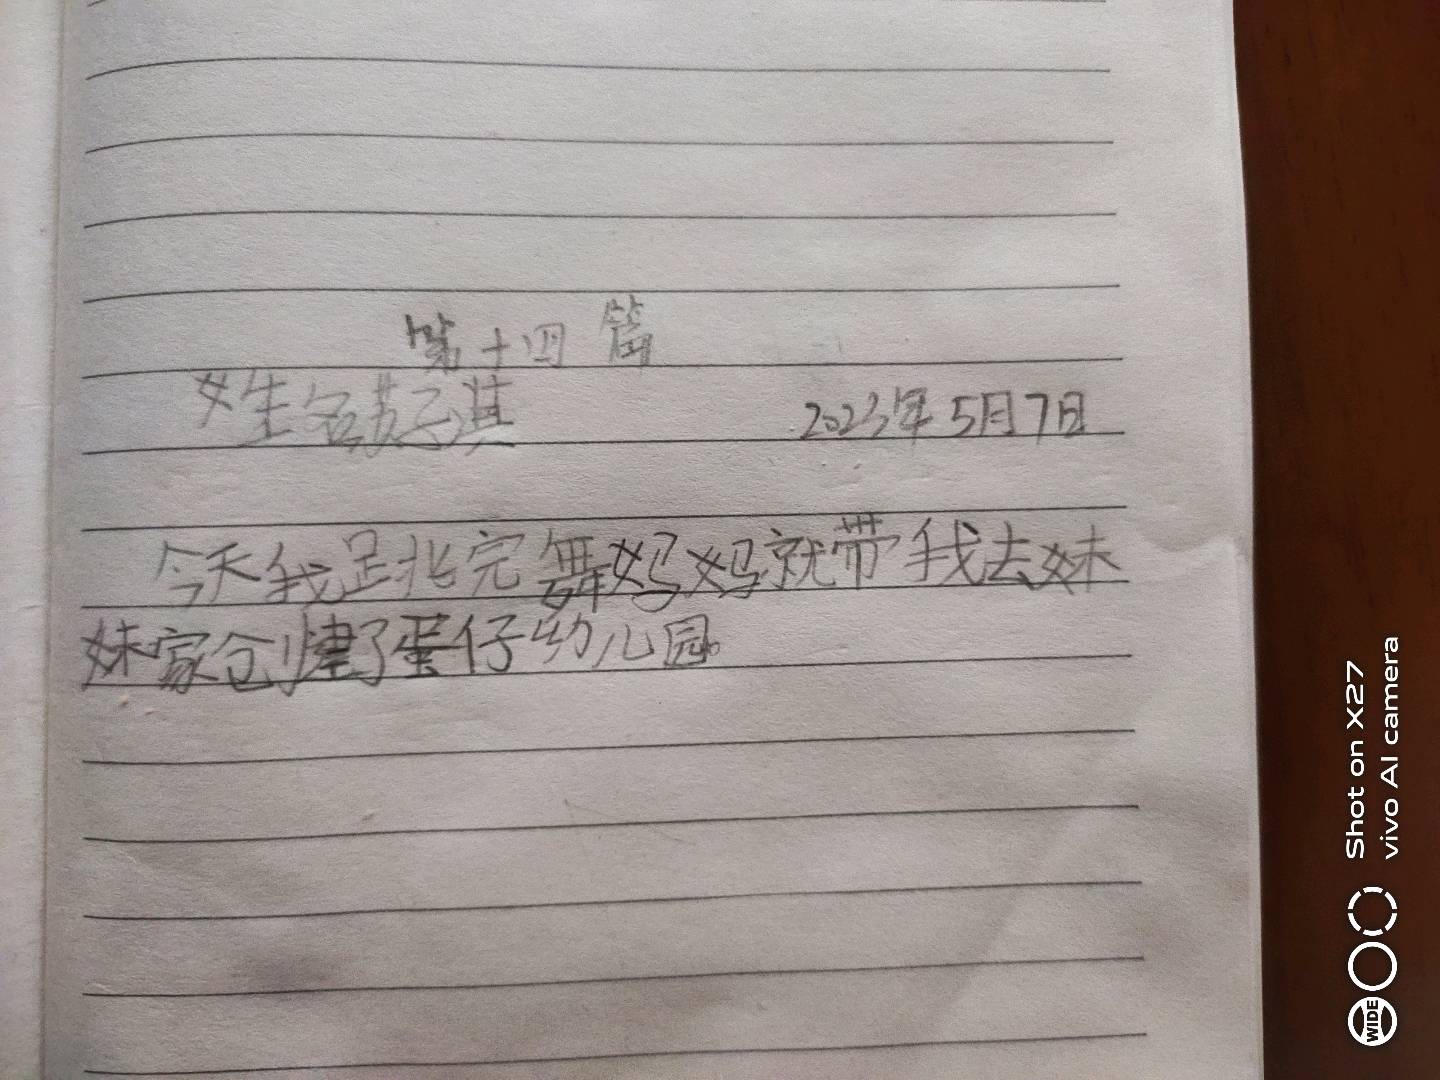 第十四篇
姓名苏子淇
2023年5月7日
今天我足兆完舞妈妈就带我去妹
妹家仓刂建了蛋仔幼儿园。
Shot on X27
vivo AI camera
WIDE